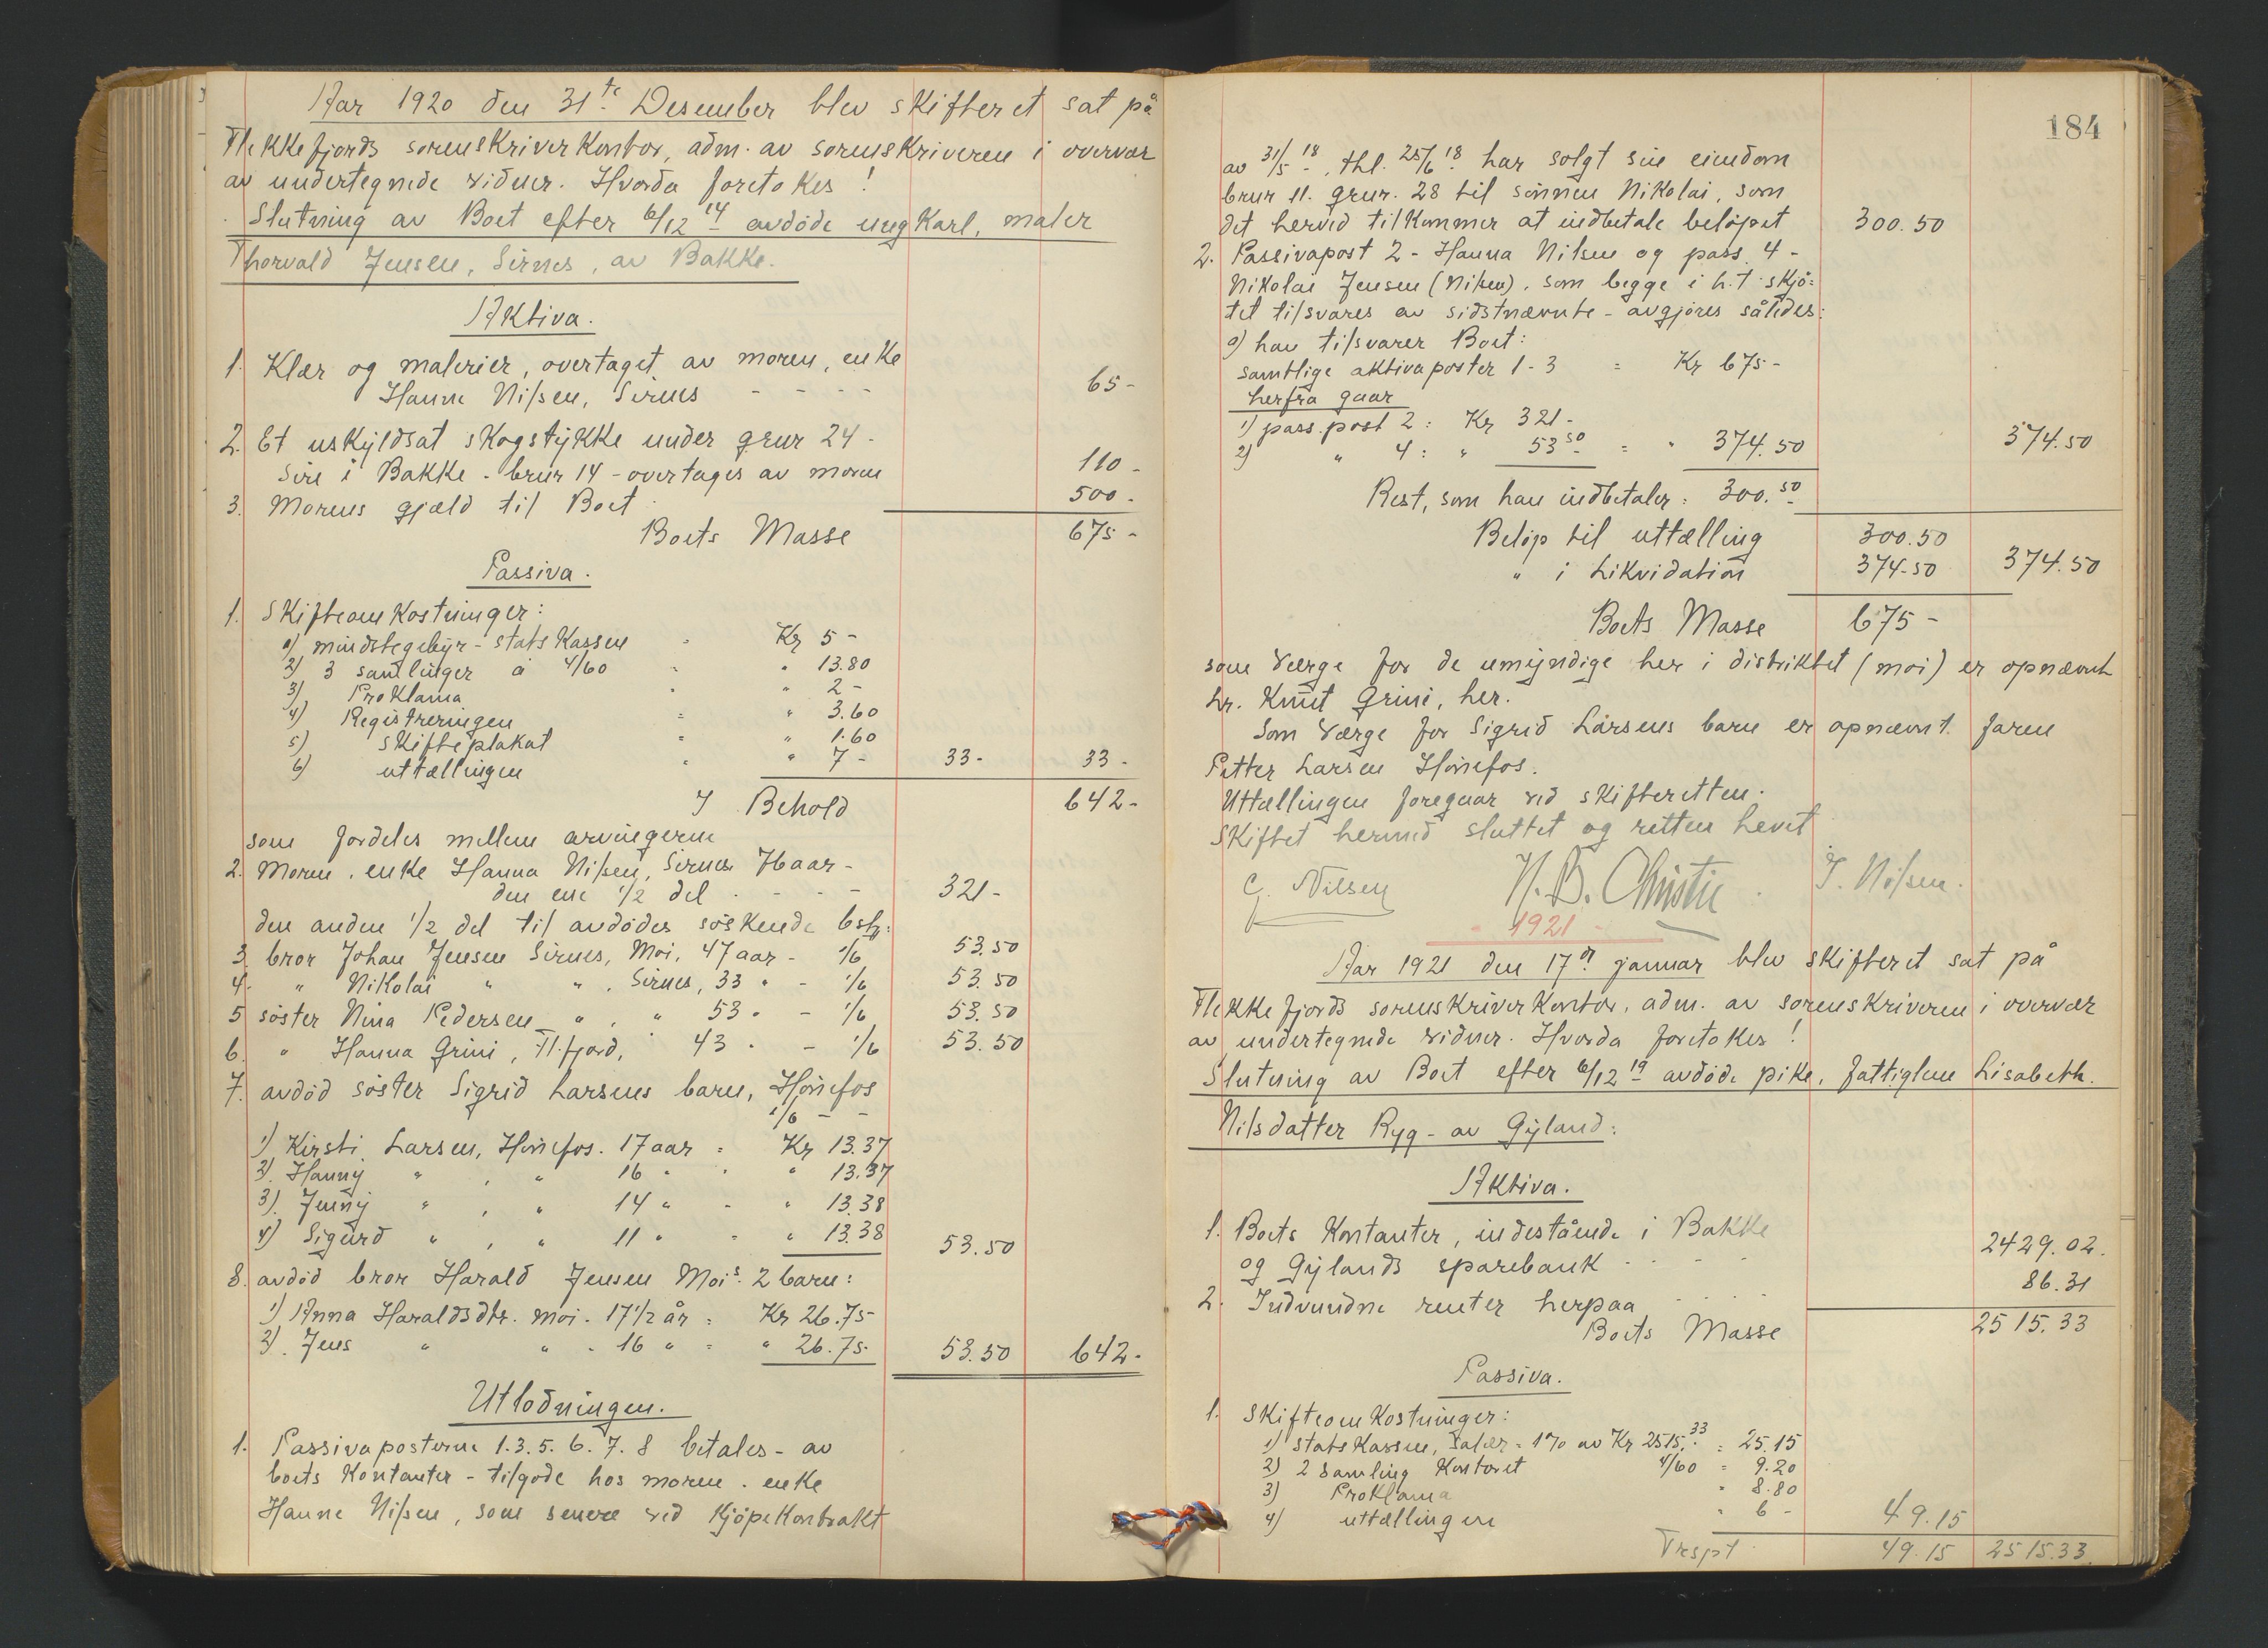 Aar 1920 den 31te Desember blev skifteret sat på
Flekkefjords sorenskriverkontor, adm. av sorenskriveren i overvær
av undertegnede vidner. Hvorda foretokes!
Slutning av Boet efter 6/12 14 avdöde ungkarl, maler
Thorvald Jensen, Sirnes, av Bakke.
Aktiva.
1. Klær og malerier, overtaget av moren, enke
Hanne Nilsen, Sirnes - - - - 65-
2. Et uskyldsat skogstykke under grnr 24 -
Sire i Bakke - brnr 14 - overtages av moren 110 -
3. Morens gjæld til Boet 500 -
Boets Masse 675 -
Passiva.
1. Skifteomkostninger:
1) mindstegebyr - statskassen = Kr 5 -
2) 3 samlinger á 4/60 = " 13.80
3) Proklama " " 2 -
4) Registreringen = " 3.60
5) skifteplakat = " 1.60
6) uttællingen " " 7 - 33 - 33 -
I Behold 642 -
som fordeles mellem arvingerne
2. Moren, enke Hanna Nilsen, Sirnes 76 aar -
den ene 1/2 del - - - - 321 -
den anden 1/2 del til avdödes söskende 6 stk:
3. bror Johan Jensen Sirnes, Moi, 47 aar - 1/6 53.50
4. " Nikolai " " , Sirnes, 33 " - 1/6 53.50
5 söster Nina Pedersen " , " 53 " - 1/6 53.50
6. " Hanna Grini, Fl.fjord, 43 " - 1/6 53.50
7. avdöd söster Sigrid Larsens barn, Hönefos
1/6 - -
1) Kirsti Larsen, Hönefos. 17 aar = Kr 13.37
2) Hanny " , " 16 " " " 13.37
3) Jenny " , " 14 " - " 13.38
4) Sigurd " , " 11 " = " 13.38 53.50
8. avdöd bror Harald Jensen Mois 2 barn:
1) Anna Haraldsdtr. Moi. 17 1/2 år = Kr 26.75
2) Jens " " - 16 " = " 26.75 53.50 642 -
Utlodningen.
1. Passivaposterne 1.3.5.6.7.8 betales - av
boets Kontanter - tilgode hos moren, enke
Hanne Nilsen, som senere ved Kjöpekontrakt
184
av 31/5 18, thl. 25/6 18 har solgt sin eiendom
brnr 11. grnr. 28 til sönnen Nikolai, som
det herved tilkommer at indbetale belöpet 300.50
2. Passivapost 2 - Hanna Nilsen og pass. 4 -
Nikolai Jensen (Nilsen), som begge i h.t. skjö=
tet tilsvares av sidstnævnte - avgjöres således:
a) han tilsvarer Boet:
samtlige aktivaposter 1 - 3 = Kr 675 -
herfra gaar
1) pass.post 2: Kr 321 -
2) " 4: " 53 50 = " 374.50 374.50
Rest, som han indbetaler: 300.50
Belöp til uttælling 300.50
" i Likvidation 374.50 374.50
Boets Masse 675 -
som Værge for de umyndige her i distriktet (Moi) er opnævnt
hr. Knut Grini, her.
Som Værge for Sigrid Larsens barn er opnævnt faren
Petter Larsen Hönefos.
Uttællingen foregaar ved skifteretten.
Skiftet hermed sluttet og retten hevet
G. Nilsen H. B. Christie. J. Nilsen.
- 1921 -
Aar 1921 den 17de januar blev skifteret sat på
Flekkefjords sorenskriverkontor, adm. av sorenskriveren i overvær
av undertegnede vidner. Hvorda foretokes!
Slutning av Boet efter 6/12 19 avdöde pike, fattiglem Lisabeth
Nilsdatter Ryg - av Gyland:
Aktiva.
1. Boets Kontanter, indestående i Bakke
og Gylands sparebank - - - - 2429.02.
2. Indvundne renter herpaa - - - - 86.31
Boets Masse 2515.33
Passiva.
1. Skifteomkostninger:
1) statskassen, salær = 1% av Kr 2515.33 = 25.15
2) 2 samling Kontoret 4/60 = 9.20
3) Proklama " 8.80
4) uttællingen " 6 - 49.15
Trspt 49.15 2515.33.